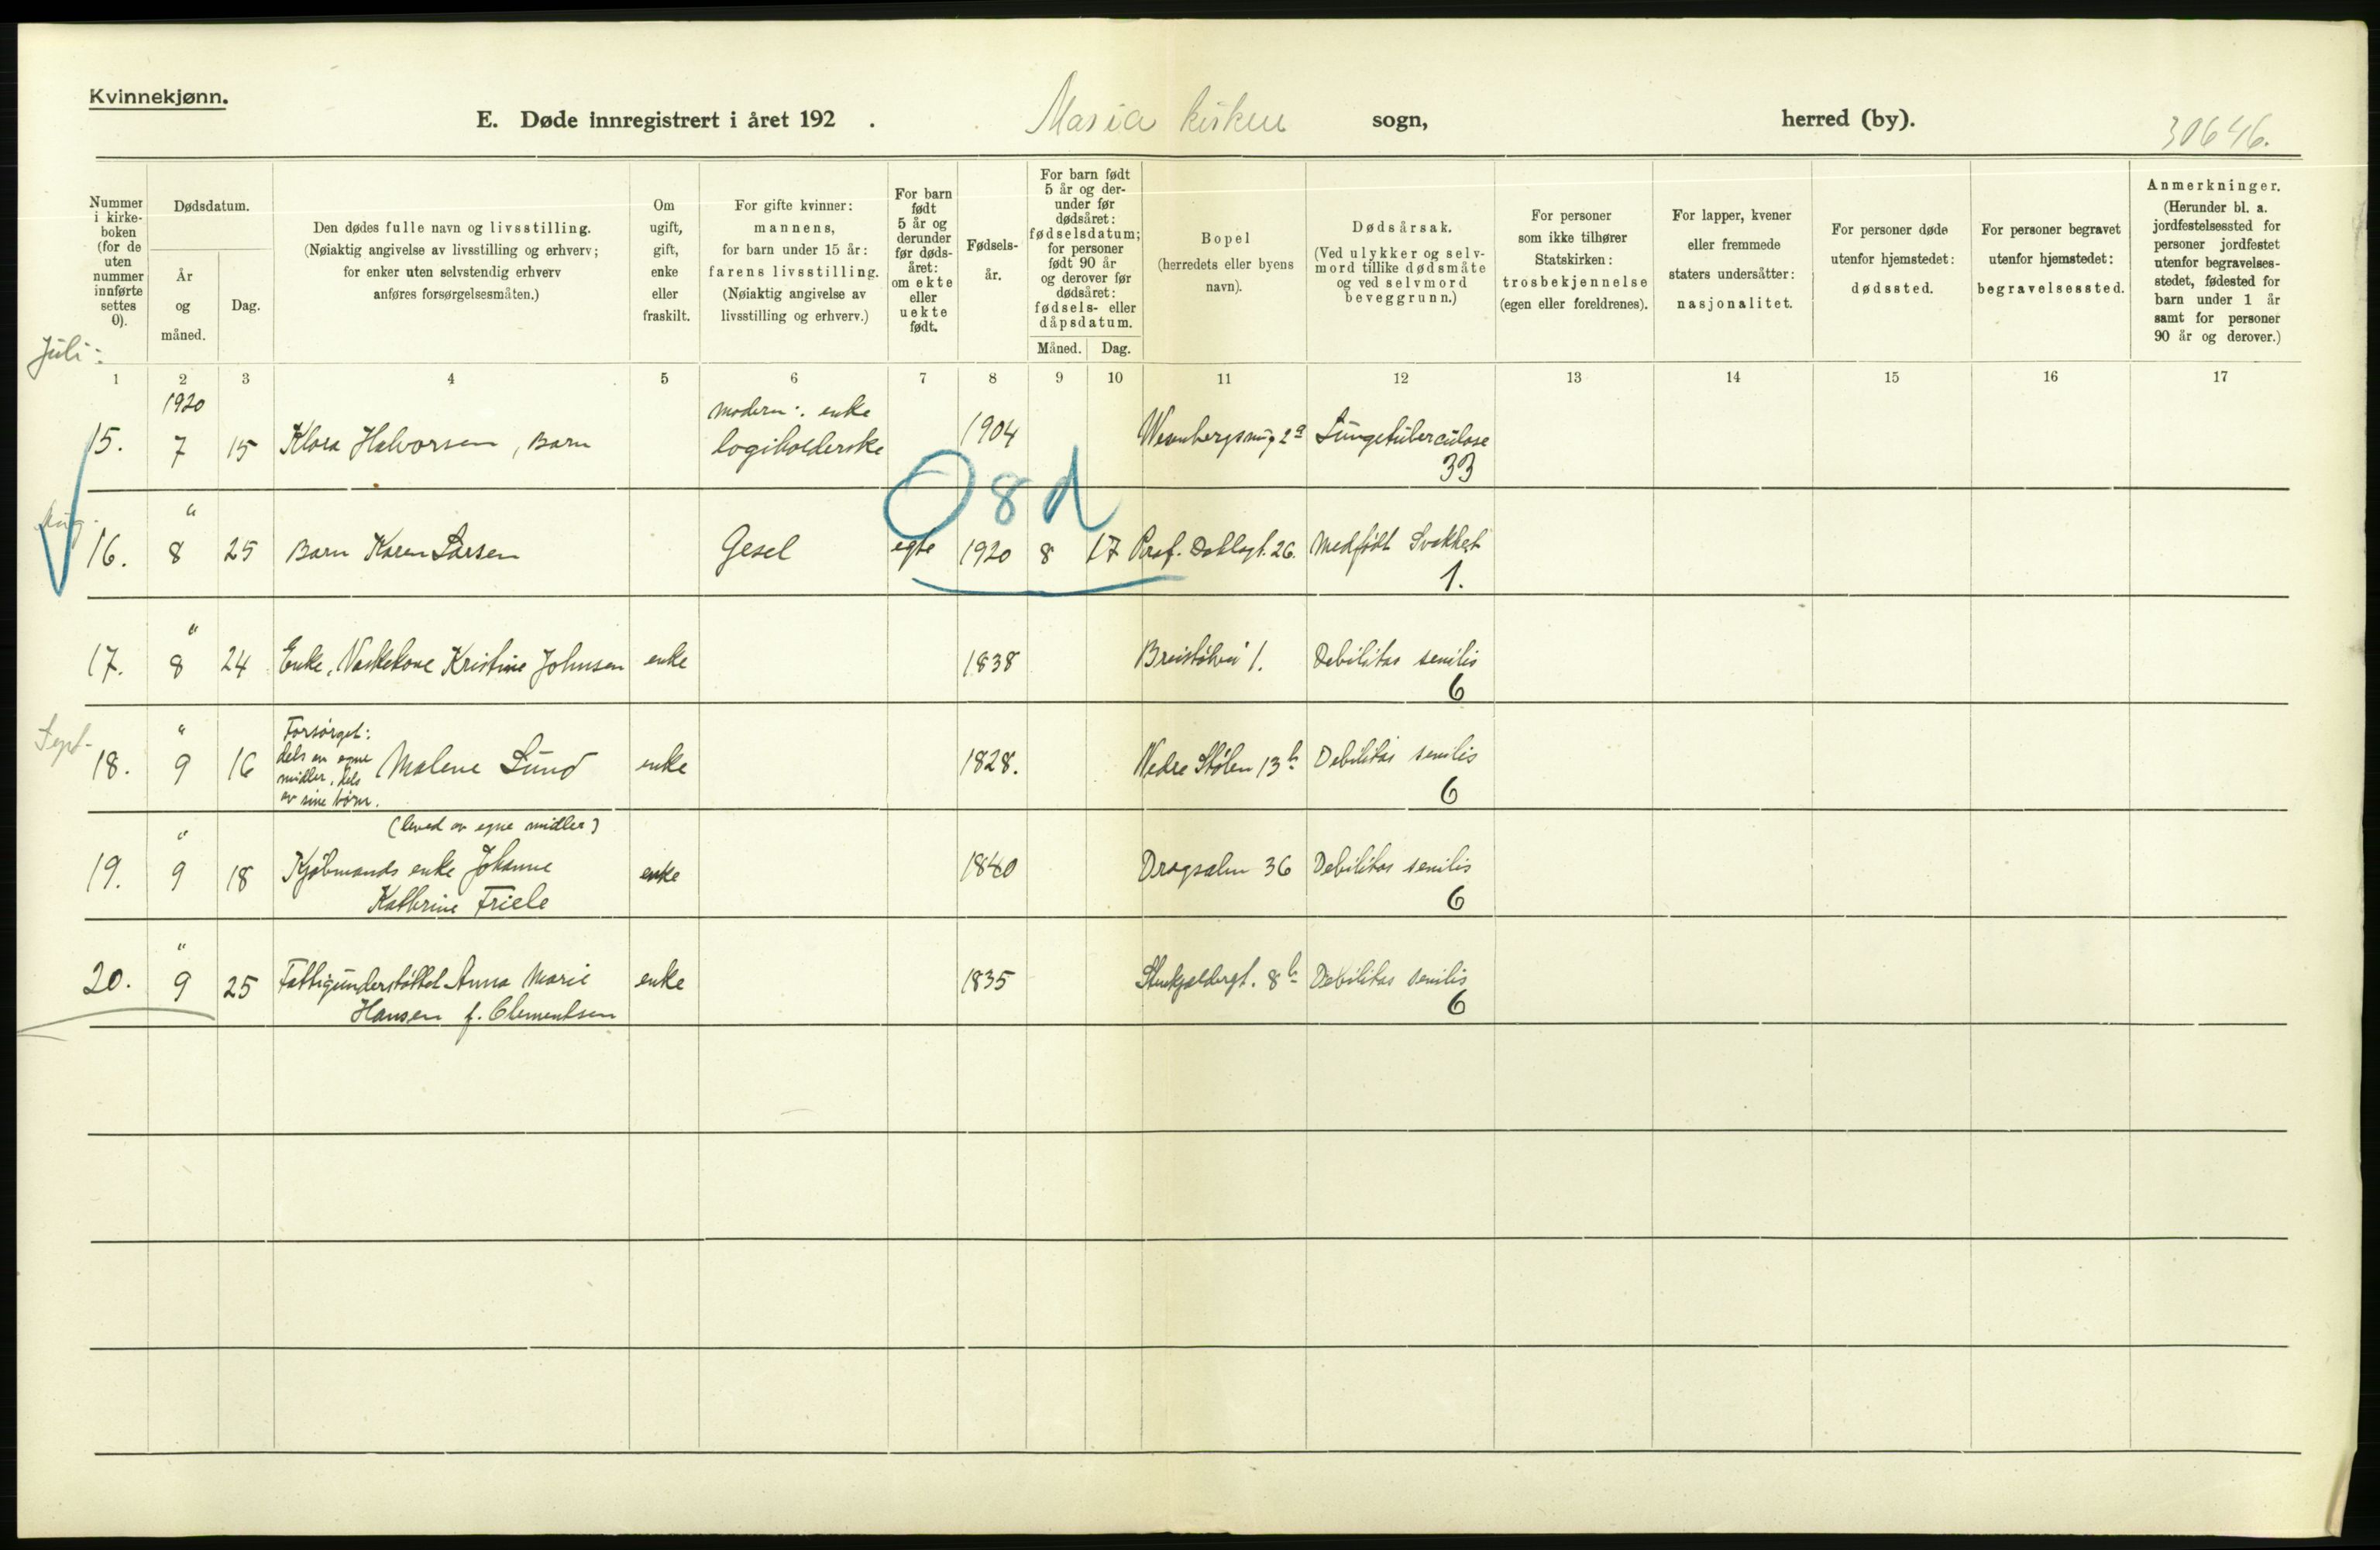 Kvinnekjønn.
E. Døde innregistrert i året 192 . Maria kirken sogn, herred (by). 30646.
Nummer i kirke-boken (for de uten nummer innførte settes 0).
Dødsdatum.
År og måned.
Dag.
Den dødes fulle navn og livsstilling.
(Nøiaktig angivelse av livsstilling og erhverv;
for enker uten selvstendig erhverv
anføres forsørgelsesmåten.)
Om ugift, gift, enke eller fraskilt.
For gifte kvinner:
mannens,
for barn under 15 år:
farens livsstilling.
(Nøiaktig angivelse av
livsstilling og erhverv.)
For barn født 5 år og derunder før døds-året: om ekte eller uekte født.
Fødsels-år.
For barn født 5 år og der-under før dødsåret: fødselsdatum; for personer født 90 år og derover før dødsåret: fødsels- eller dåpsdatum.
Måned. Dag.
Bopel
(herredets eller byens
navn).
Dødsårsak.
(Ved ulykker og selv-
mord tillike dødsmåte
og ved selvmord
beveggrunn.)
For personer
som ikke tilhører
Statskirken:
trosbekjennelse
(egen eller foreldrenes).
For lapper, kvener
eller fremmede
staters undersåtter:
nasjonalitet.
For personer døde
utenfor hjemstedet:
dødssted.
For personer begravet
utenfor hjemstedet:
begravelsessted.
Anmerkninger.
(Herunder bl. a.
jordfestelsessted for
personer jordfestet
utenfor begravelses-
stedet, fødested for
barn under 1 år
samt for personer
90 år og derover.)
Juli:
1 2 3 4 5 6 7 8 9 10 11 12 13 14 15 16 17
1920
15. 7 15 Klara Halvorsen, Barn
modern: enke
logiholderske
1904 2a Lungetuberculose
33
O 8 d
Aug.
"
16. 8 25 Barn Karen Larsen Gesel egte 1920 8 17 Prof. Dahlsgt. 26. Medfødt Svakhet
1.
"
17. 8 24 Enke, Vaskekone Kristine Johnsen enke 1838 Breistølsvei 1. Debilitas senilis
6
Sept.
"
18. 9 16 Forsørget:
dels av egne
midler, dels
av sine børn.
Malene Lund enke 1828. Nedre Stølen 13b Debilitas senilis
6
(leved av egne midler)
"
19. 9 18 Kjøbmands enke Johanne
Kathrine Friele
enke 1840 Dragsalm 36 Debilitas senilis
6
"
20. 9 25 Fattigunderstøttet Anna Marie
Hansen f. Clementsen
enke 1835 Stenkjeldergt. 8b Debilitas senilis
6